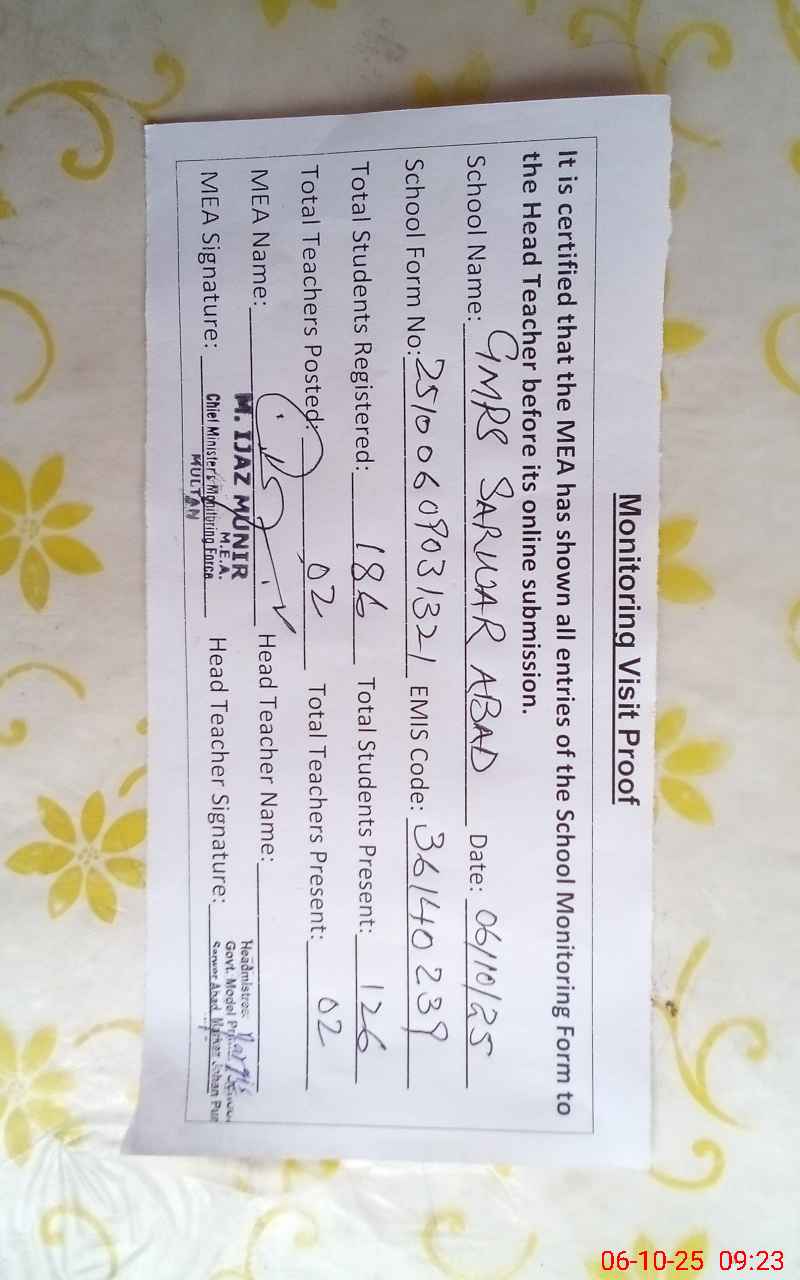 Monitoring Visit Proof
It is certified that the MEA has shown all entries of the School Monitoring Form to
the Head Teacher before its online submission.
School Name: GMPS SARWAR ABAD Date: 06/10/25
School Form No: 25100609031321 EMIS Code: 36140239
Total Students Registered: 186 Total Students Present: 126
Total Teachers Posted: 02 Total Teachers Present: 02
MEA Name: Head Teacher Name:
M. IJAZ MUNIR
M.E.A.
Chief Minister's Monitoring Force
MULTAN
MEA Signature: Head Teacher Signature:
Headmistress
Govt. Model
Sarwar Abad
06-10-25 09:23